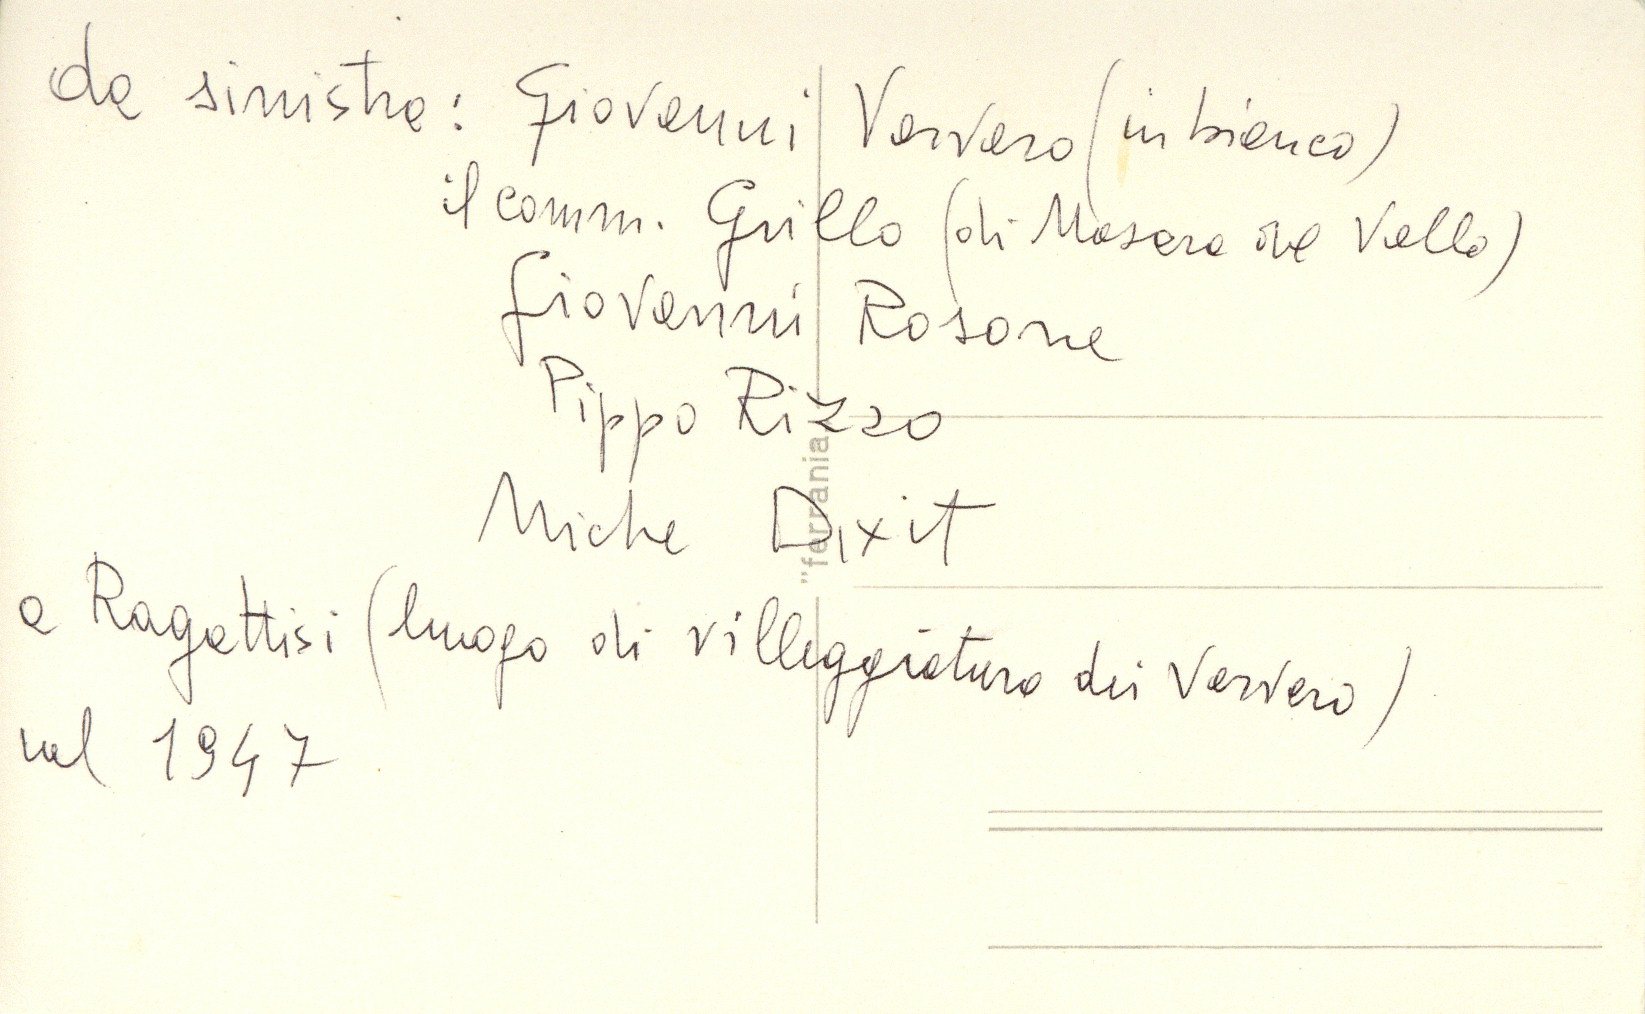 da sinistra: Giovanni Varvaro (in bianco)
il comm. Grillo (di Masara del Vallo)
Giovanni Rosone
Pippo Rizzo
Miche Dixit
"ferrania
a Ragattisi (luogo di villeggiatura dei Varvaro)
nel 1947